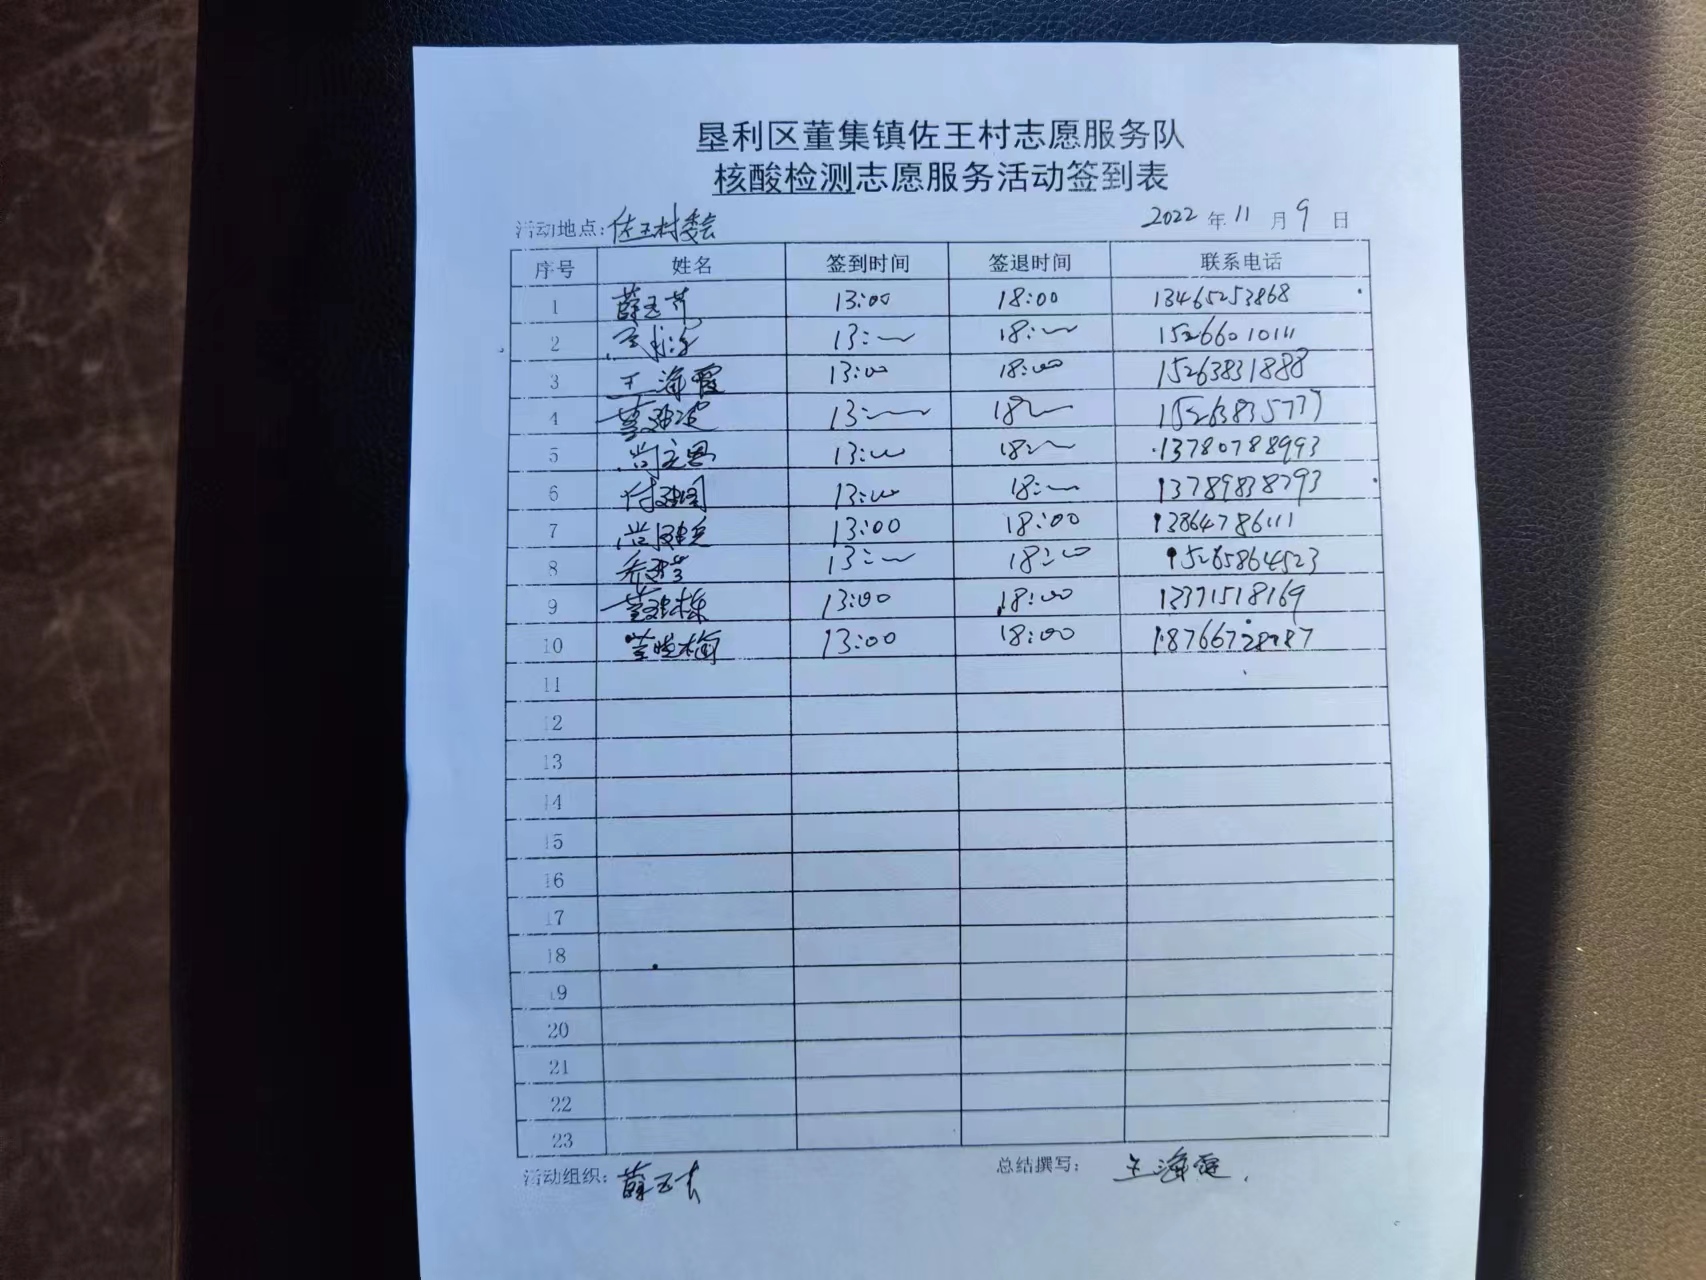 垦利区董集镇佐王村志愿服务队
核酸检测志愿服务活动签到表
活动地点:佐王村委会 2022年11月9日
序号 姓名 签到时间 签退时间 联系电话
1 13:00 18:00 13465253868
2 13:00 18:00 15266010111
3 王海霞 13:00 18:00 15263831888
4 董建波 13:00 18:00 15263835777
5 尚立恩 13:00 18:00 13780788993
6 付建国 13:00 18:00 13789838793
7 13:00 18:00 13864786111
8 乔建芳 13:00 18:00 15265864523
9 董建栋 13:00 18:00 13371518169
10 董晓梅 13:00 18:00
11
12
13
14
15
16
17
18
19
20
21
22
23
活动组织: 总结撰写: 王海霞